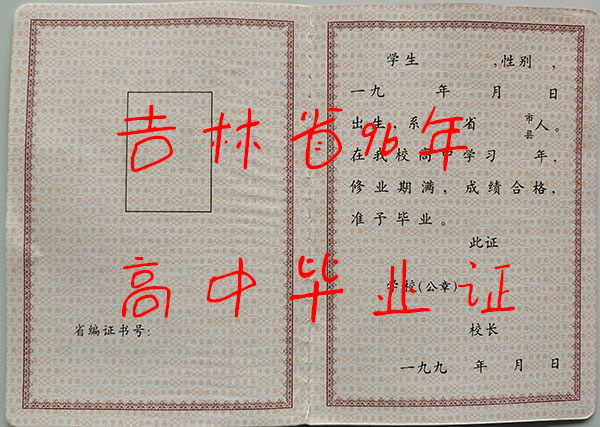 省编证书号:
学生 ,性别 ,
一九 年 月 日
出生,系 省 市县人。
在我校高中学习 年,
修业期满,成绩合格,
准予毕业。
此证
学校(公章)
校长
一九九 年 月 日
吉林省96年
高中毕业证